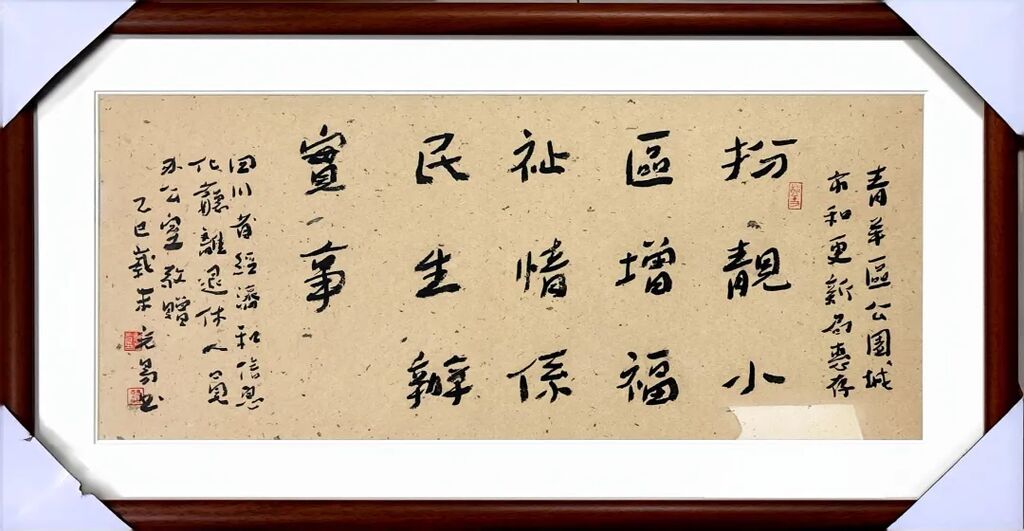 青羊區公園城
市和更新局惠存
扮靚小
區增福
祉情係
民生辦
實事
四川省經濟和信息
化廳離退休人員
办公室敬贈
乙巳歲末完易书